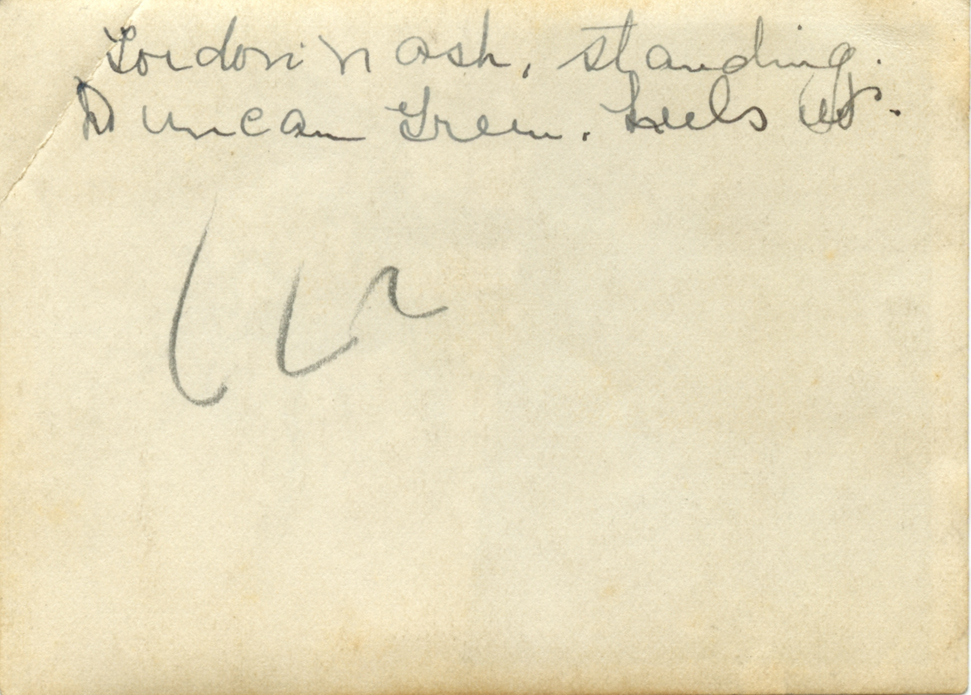 Gordon Nash, standing.
Duncan Green. Heels up.